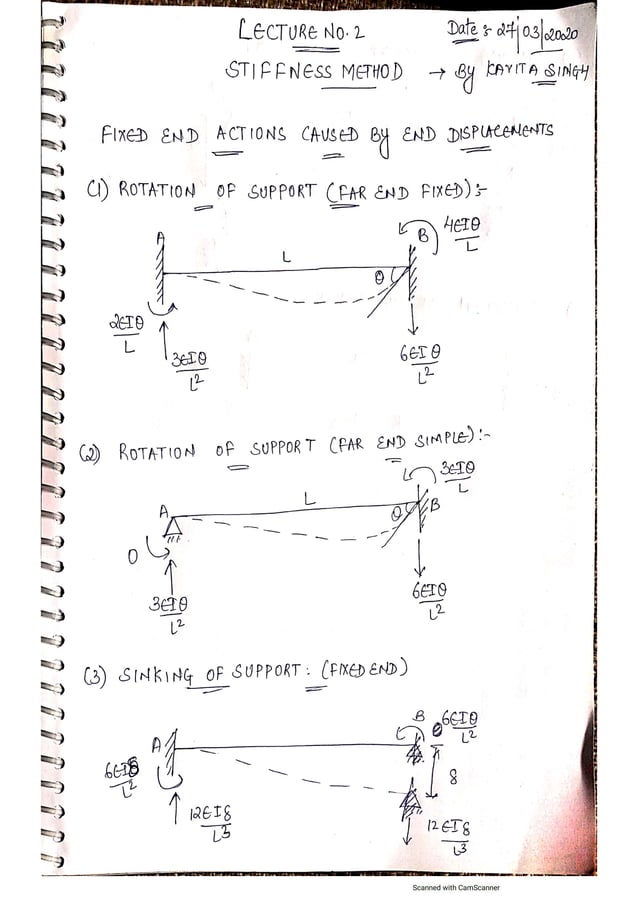 LECTURE NO. 2
Date : 27/03/2020
STIFFNESS METHOD → By KAVITA SINGH
FIXED END ACTIONS CAUSED By END DISPLACEMENTS
(1) ROTATION OF SUPPORT (FAR END FIXED) :-
A
L
B
4EIθ/L
θ
2EIθ/L
3EIθ/L²
6EIθ/L²
(2) ROTATION OF SUPPORT (FAR END SIMPLE) :-
3EIθ/L
A
L
B
θ
0
3EIθ/L²
6EIθ/L²
(3) SINKING OF SUPPORT : (FIXED END)
B
6EIθ/L²
A
6EIδ/L²
δ
12EIδ/L³
12EIδ/L³
Scanned with CamScanner